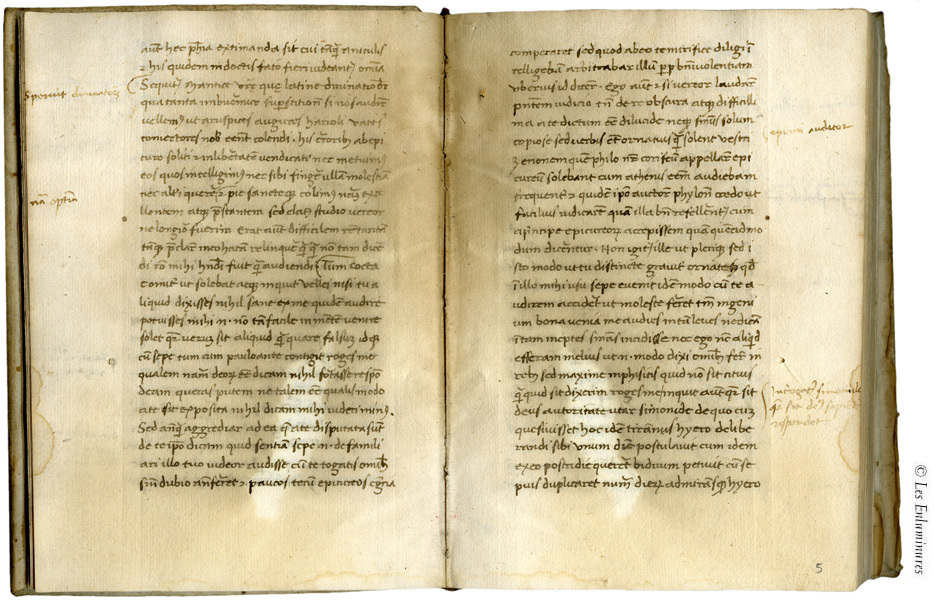 aut hec phia extimanda sit cui tāq aniculis
& his quidem indoctis fato fieri uideant omia
Sequit mantice urē que latine diuinatio dr
qua tanta imbueremur supstitione si uos audire
uellem ut aruspices augures harioli uates
coniectores nobis eent colendi. his terroribus ab epi
curo soluti & in libertate uendicati nec metuimus
eos quos intelligim nec sibi fingere ulla molestia
nec alteri querere & pie sancteque colimus natura exce
llentem atque prestantem sed elatus studio uereor
ne longior fuerim. Erat aut difficile re tanta
tamque preclara incohata relinquere quamquam no tam dice
di ratio mihi habenda fuit quam audiendi Tum cocta
comiter ut solebat atque inquit uellei nisi tu a
liquid dixisses nihil sane ex me quide audire
potuisses mihi n. no ta facile in mente uenire
solet quare uerum sit aliquid quam quare falsum idque
cu sepe tum cum te pauloante contigit roges me
qualem naturam deorum ee dicam nihil fortasse respo
deam queras putem ne talem ee qualis modo
a te sit exposita nihil dicam mihi uideri minus.
Sed anteq aggrediar ad ea que a te disputata sunt
de te ipo dicam quid sentiam sepe n. de famili
ari illo tuo uideor audisse cu te togatis omibus
sine dubio anferret & paucos tecum epicureos e grecia
Spernit diuinatores
nam optimam
compararet sed quod ab eo te mirifice diligi i
telligebam arbitrabar illum propter beniuolentiam
uberius id dicere. Ego aut & si uereor laudare
presentem iudicio tamen de re obscura atque difficili
m a te dictum ee dilucide neque sententiis solum
copiose sed uerbis etiam ornatius quam solent uestri
zenonem que philo noster corifeu appellare epi
cureu solebant cum athenis eem audiebam
frequenter & quidem ipo auctore phylone credo ut
facilius iudicarem quam illa bene refellerentur cum
a principe epicureorum accepissem quemadmo
dum dicerentur. Non igitur ille ut plerique sed i
sto modo ut tu distincte grauiter ornate sed quod
i illo mihi usu sepe euenit idem modo cu te a
udirem accideret ut moleste ferrem tantum ingeni
um bona uenia me audies in tam leues ne dicam
i tam ineptas sententias incidisse nec ego nunc aliquid
efferam melius ut n. modo dixi omibus fere in
rebus sed maxime in phisicis quid no sit citius
quam quid sit dixerim roges me inquit aut quale sit
deus auctoritate utar simonide de quo cum
quesiuisset hoc idem tirannus hyero delibe
randi sibi unum diem postulauit cum idem
ex eo postridie quereret biduum petiuit cu se
pius duplicaret numerum dierum admiransque hyero
epicuri auditor
Interroget simonide
quid sit deus sapienter
respondet
5
© Les Enluminures